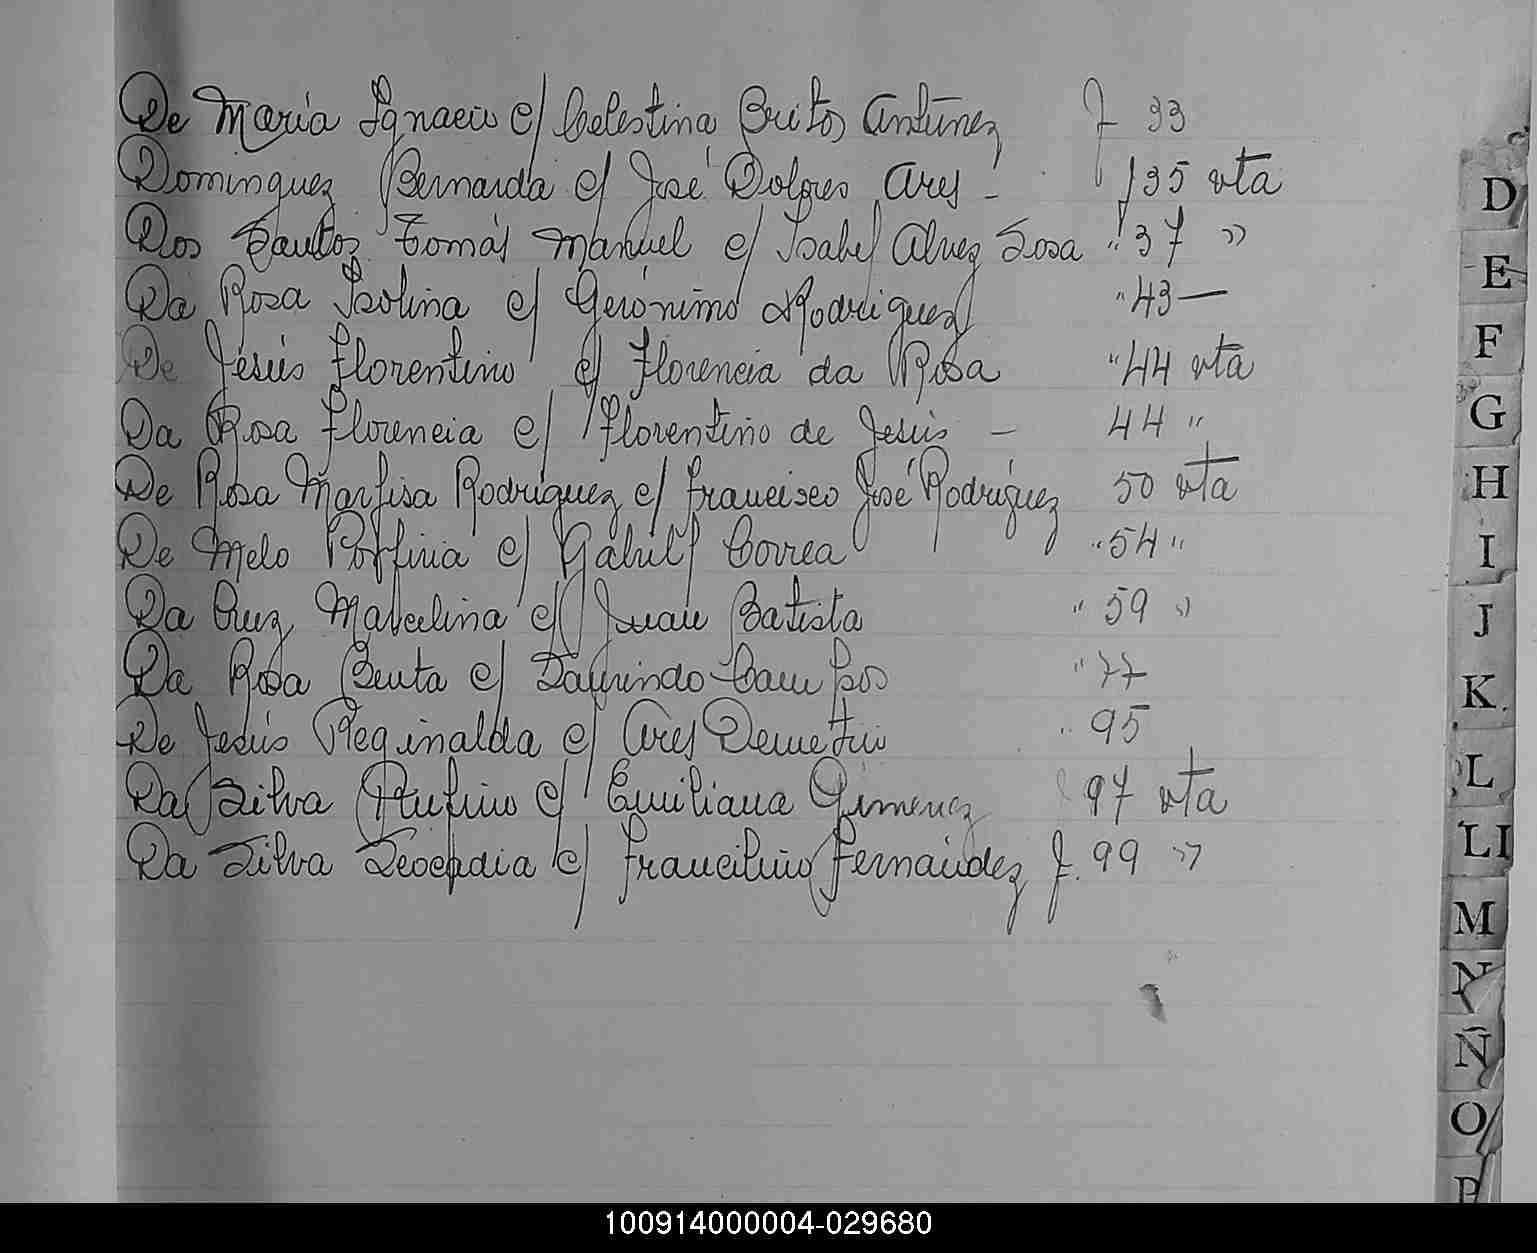 De María Ignacio c/ Celestina Britos Antúnez f 33
Dominguez Bernarda c/ José Dolores Ares - f 35 vta
Dos Santos Tomás Manuel c/ Isabel Alvez Sosa " 37 "
Da Rosa Isolina c/ Gerónimo Rodriguez " 43 —
De Jesús Florentino c/ Florencia da Rosa " 44 vta
Da Rosa Florencia c/ Florentino de Jesús - 44 "
De Rosa Marfisa Rodriguez c/ Francisco José Rodriguez 50 vta
De Melo Porfiria c/ Gabriel Correa " 54 "
Da Cruz Marcelina c/ Juan Batista " 59 "
Da Rosa Benta c/ Laurindo Campos " 77
De Jesús Reginalda c/ Ares Demetrio " 95
Da Silva Rufino c/ Emiliana Gimenez 97 vta
Da Silva Leocadia c/ Francilino Fernández f. 99 "
D
E
F
G
H
I
J
K
L
Ll
M
N
Ñ
O
P
100914000004-029680